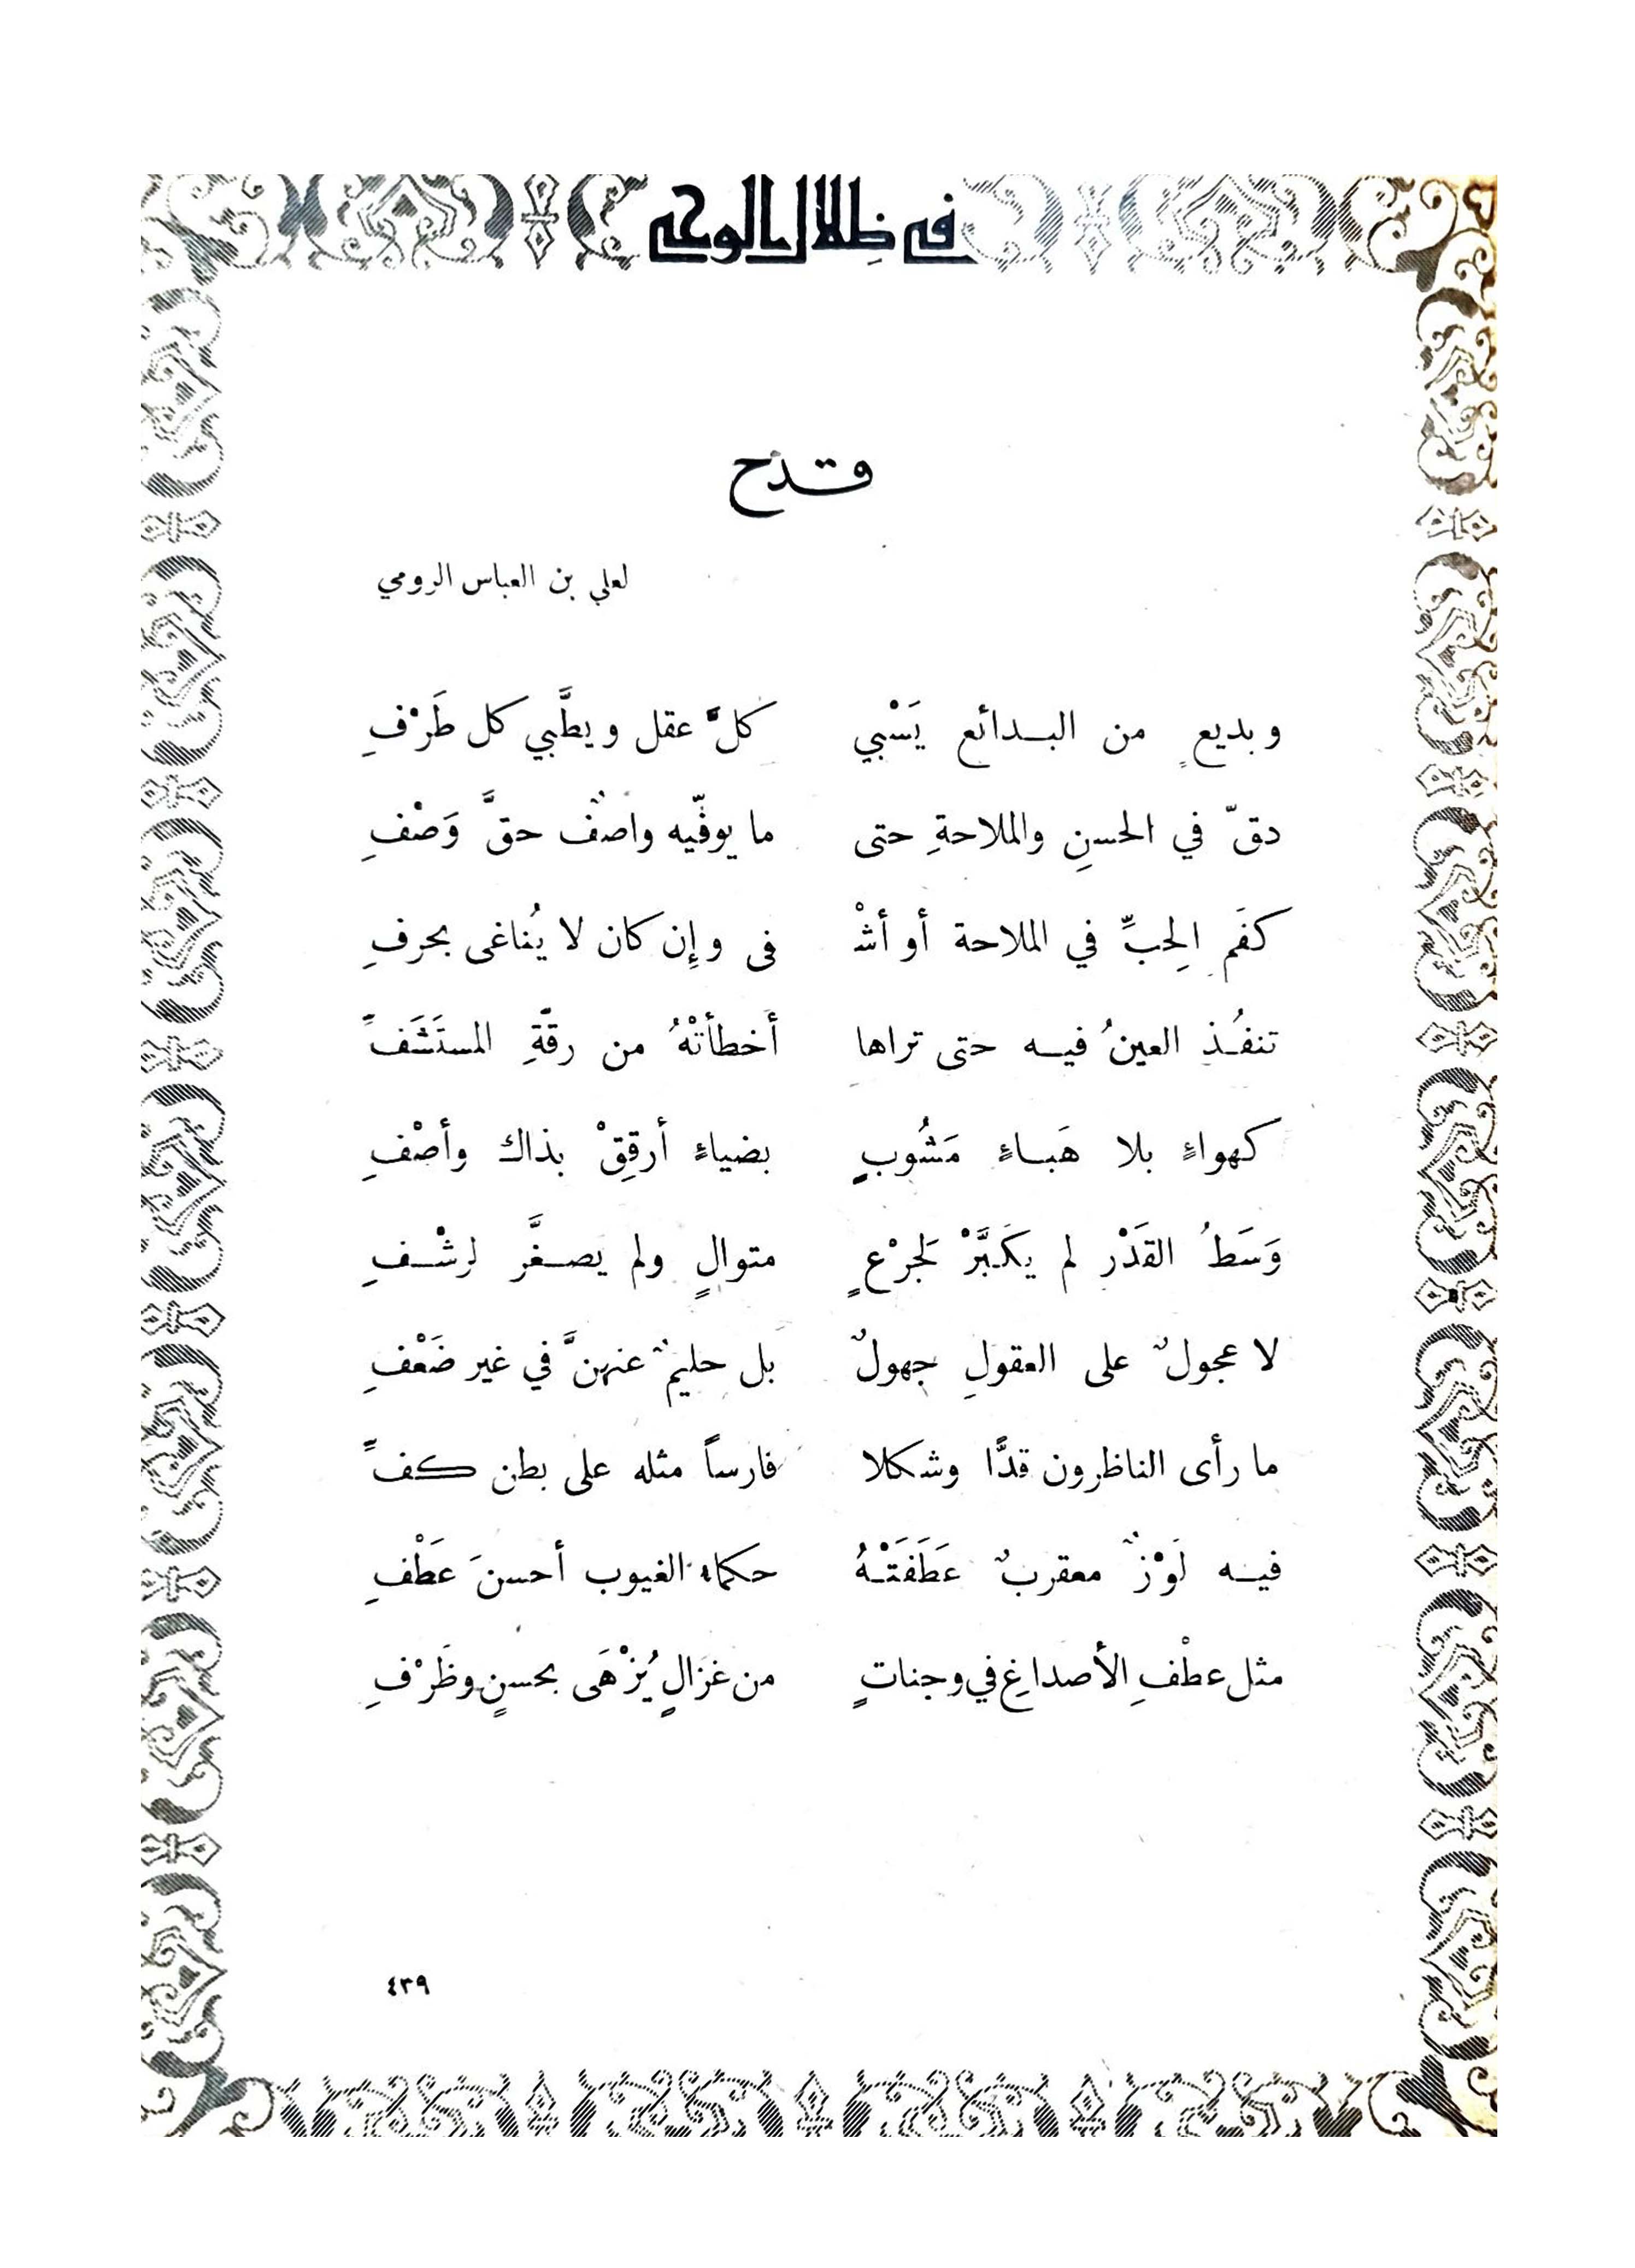 في ظلال الوحي
قدح
لعلي بن العباس الرومي
وبديعٍ من البدائع يَسْبي كلَّ عقل ويطَّبي كل طَرْفِ
دقّ في الحسنِ والملاحةِ حتى ما يوفّيه واصفٌ حقَّ وَصْفِ
كفَمِ الحِبِّ في الملاحة أو أشْ فى وإن كان لا يُناغى بحرفِ
تنفُذ العينُ فيه حتى تراها أخطأتْهُ من رقَّةِ المستَشَفِّ
كهواءٍ بلا هَباءٍ مَشُوبٍ بضياءٍ أرقِقْ بذاك وأصْفِ
وَسَطُ القَدْر لم يكَبَّرْ لجرْعٍ متوالٍ ولم يصغَّر لرشْفِ
لا عجولٌ على العقولِ جهولٌ بل حليمٌ عنهنَّ في غير ضَعْفِ
ما رأى الناظرون قدًّا وشكلا فارساً مثله على بطن كفِّ
فيه لَوْزٌ معقربٌ عَطَفَتْهُ حكماء الغيوب أحسنَ عَطْفِ
مثل عطْفِ الأصداغِ في وجناتٍ من غزالٍ يُزْهَى بحسنٍ وظَرْفِ
٤٣٩